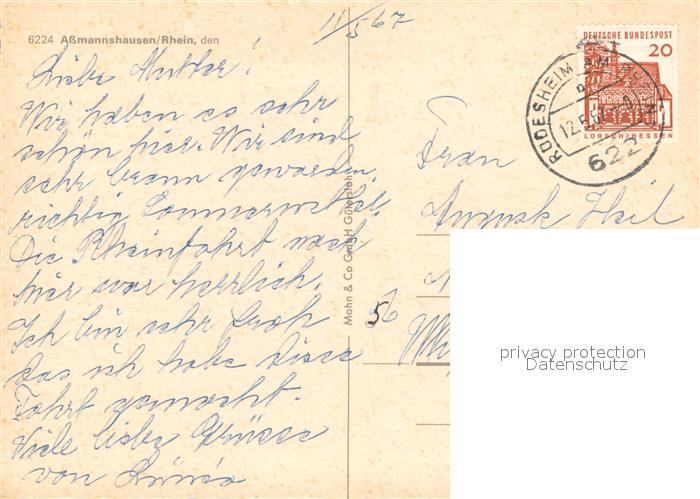 6224 Aßmannshausen/Rhein, den
11/5 67
Liebe Mutter!
Wir haben es sehr
schön hier. Wir sind
sehr braun geworden,
richtig Sommerwetter.
Die Rheinfahrt nach
hier war herrlich.
Ich bin sehr froh
das ich habe diese
Fahrt gemacht.
Viele liebe Grüsse
von
Mohn & Co GmbH Gütersloh
DEUTSCHE BUNDESPOST
20
LORSCH/HESSEN
RÜDESHEIM AM
12.5.67
622
Frau
August
56
privacy protection
Datenschutz